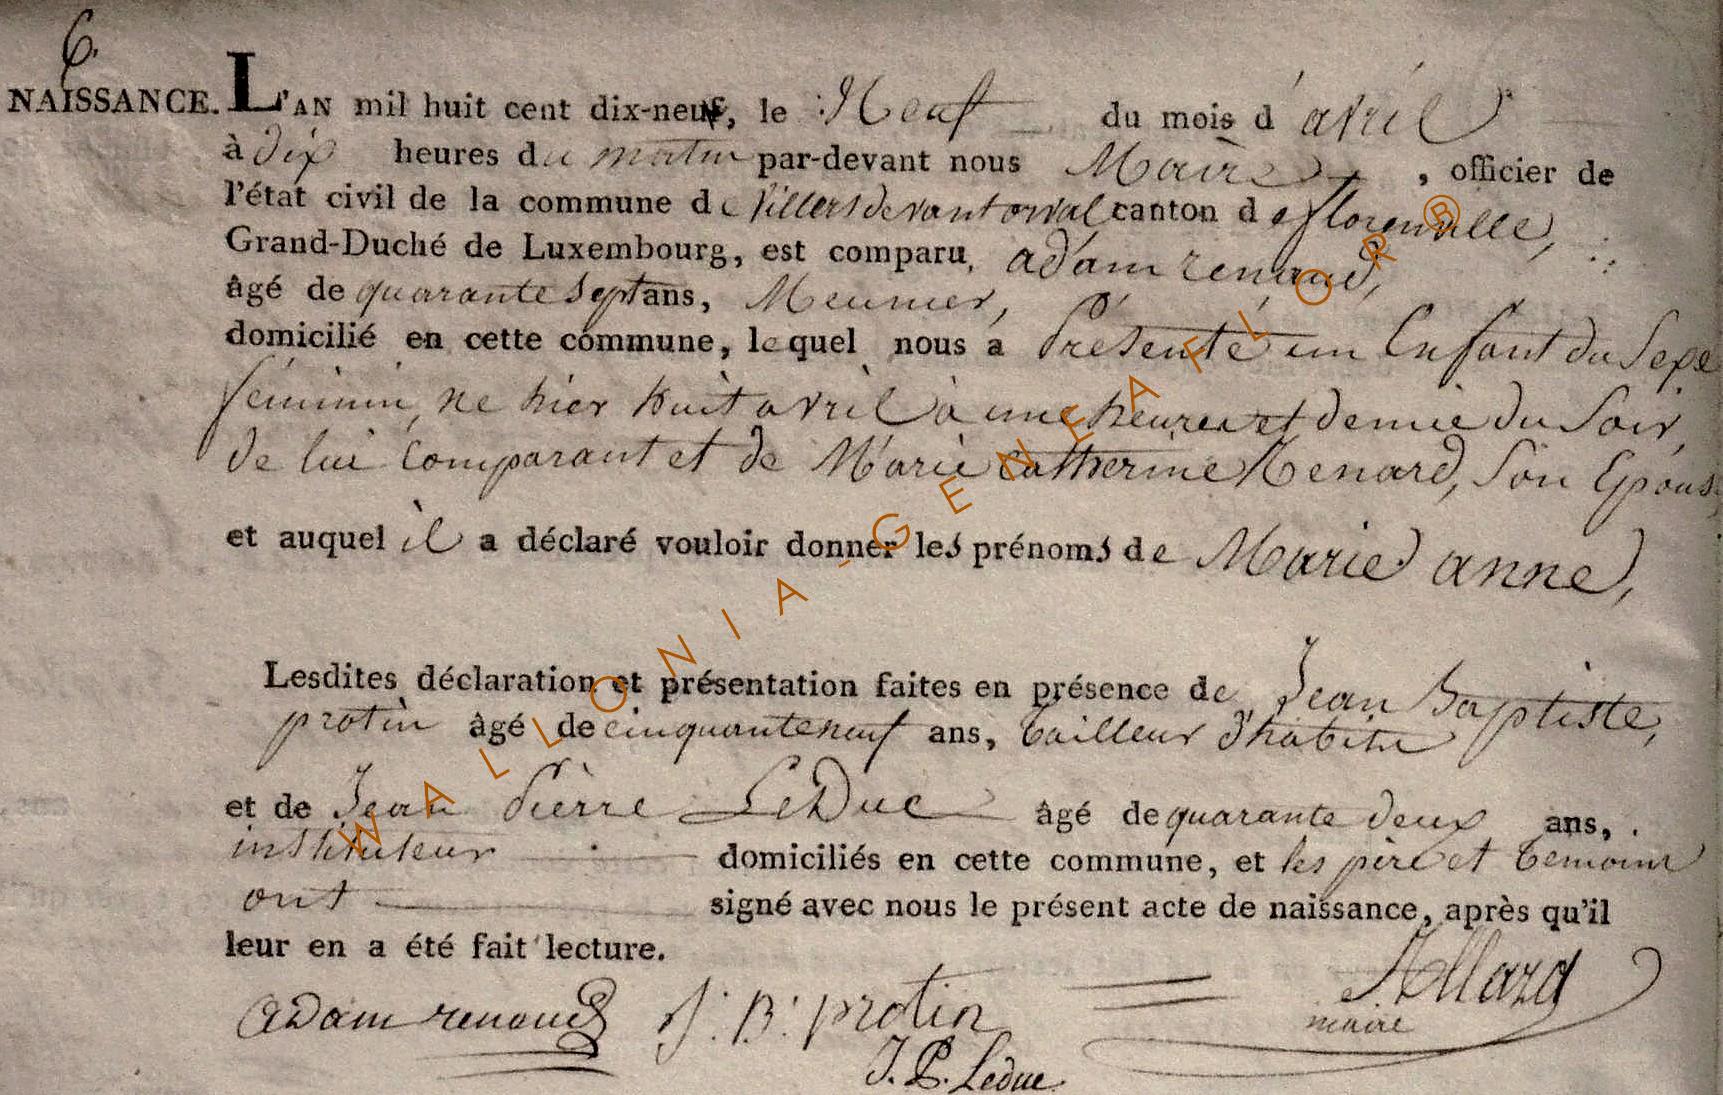 6.
NAISSANCE. L'AN mil huit cent dix-neuf, le Neuf du mois d'avril
à dix heures du matin par-devant nous Maire, officier de
l'état civil de la commune de Villers devant orval canton de florenville,
Grand-Duché de Luxembourg, est comparu, adam renaud,
âgé de quarante Sept ans, Meunier,
domicilié en cette commune, lequel nous a Présenté un Enfant du Sexe
féminin, né hier huit avril à une heures et demie du Soir,
de lui Comparant et de Marie Catherine Renard, Son Epouse,
et auquel il a déclaré vouloir donner les prénoms de Marie anne,
Lesdites déclaration et présentation faites en présence de Jean Baptiste,
protin âgé de cinquante neuf ans, tailleur d'habits
et de Jean Pierre LeDuc âgé de quarante deux ans,
instituteur domiciliés en cette commune, et les père et temoins
ont signé avec nous le présent acte de naissance, après qu'il
leur en a été fait lecture.
adam renaud J. B. protin Allard
maire
J. P. Leduc
WALLONIA-GENEAFLOR®